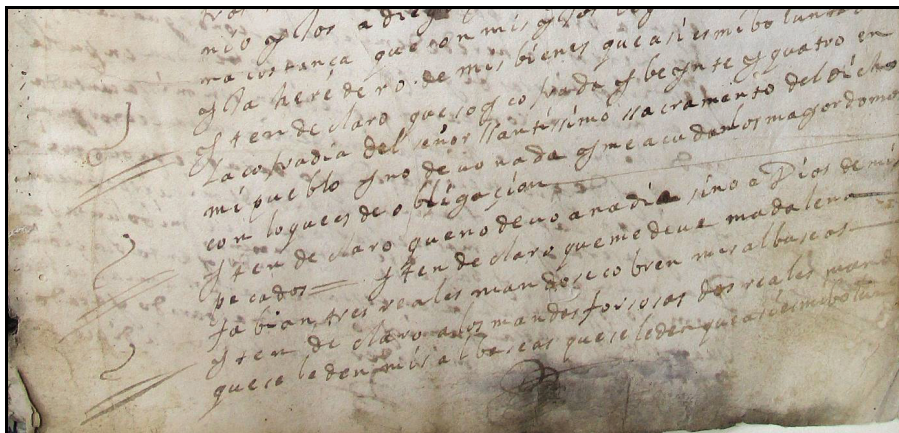 nio y los a dieg
ma costança que son mis yjos
y sea heredero de mis bienes que asi es mi bolunt
yten declaro que soy cofrade y beynte y quatro en
la cofradia del señor ssantissimo ssacramento del dicho
mi pueblo y no devo nada y me acudan los mayordomos
con lo que es de obligaçion
yten declaro que no devo a nadie sino a Dios de mis
pecados yten declaro que me deve madalena
fabian tres reales mando se cobren mis albaseas
yten declaro a las mandas forsosas dos reales mando
que se le den mis albaseas que se le den que asi es mi bolun